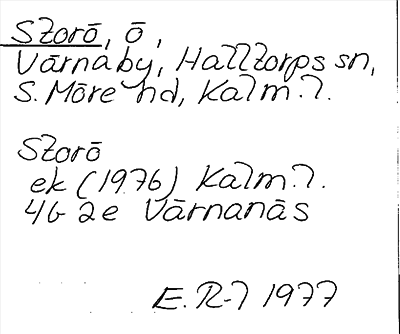 Szorö, ö,
Värnaby, Hallzorps sn,
S. Möre hd, Kalm. l.
Szorö
ek (1976) Kalm. l.
4G 2e Värnanäs
E. R-l 1977